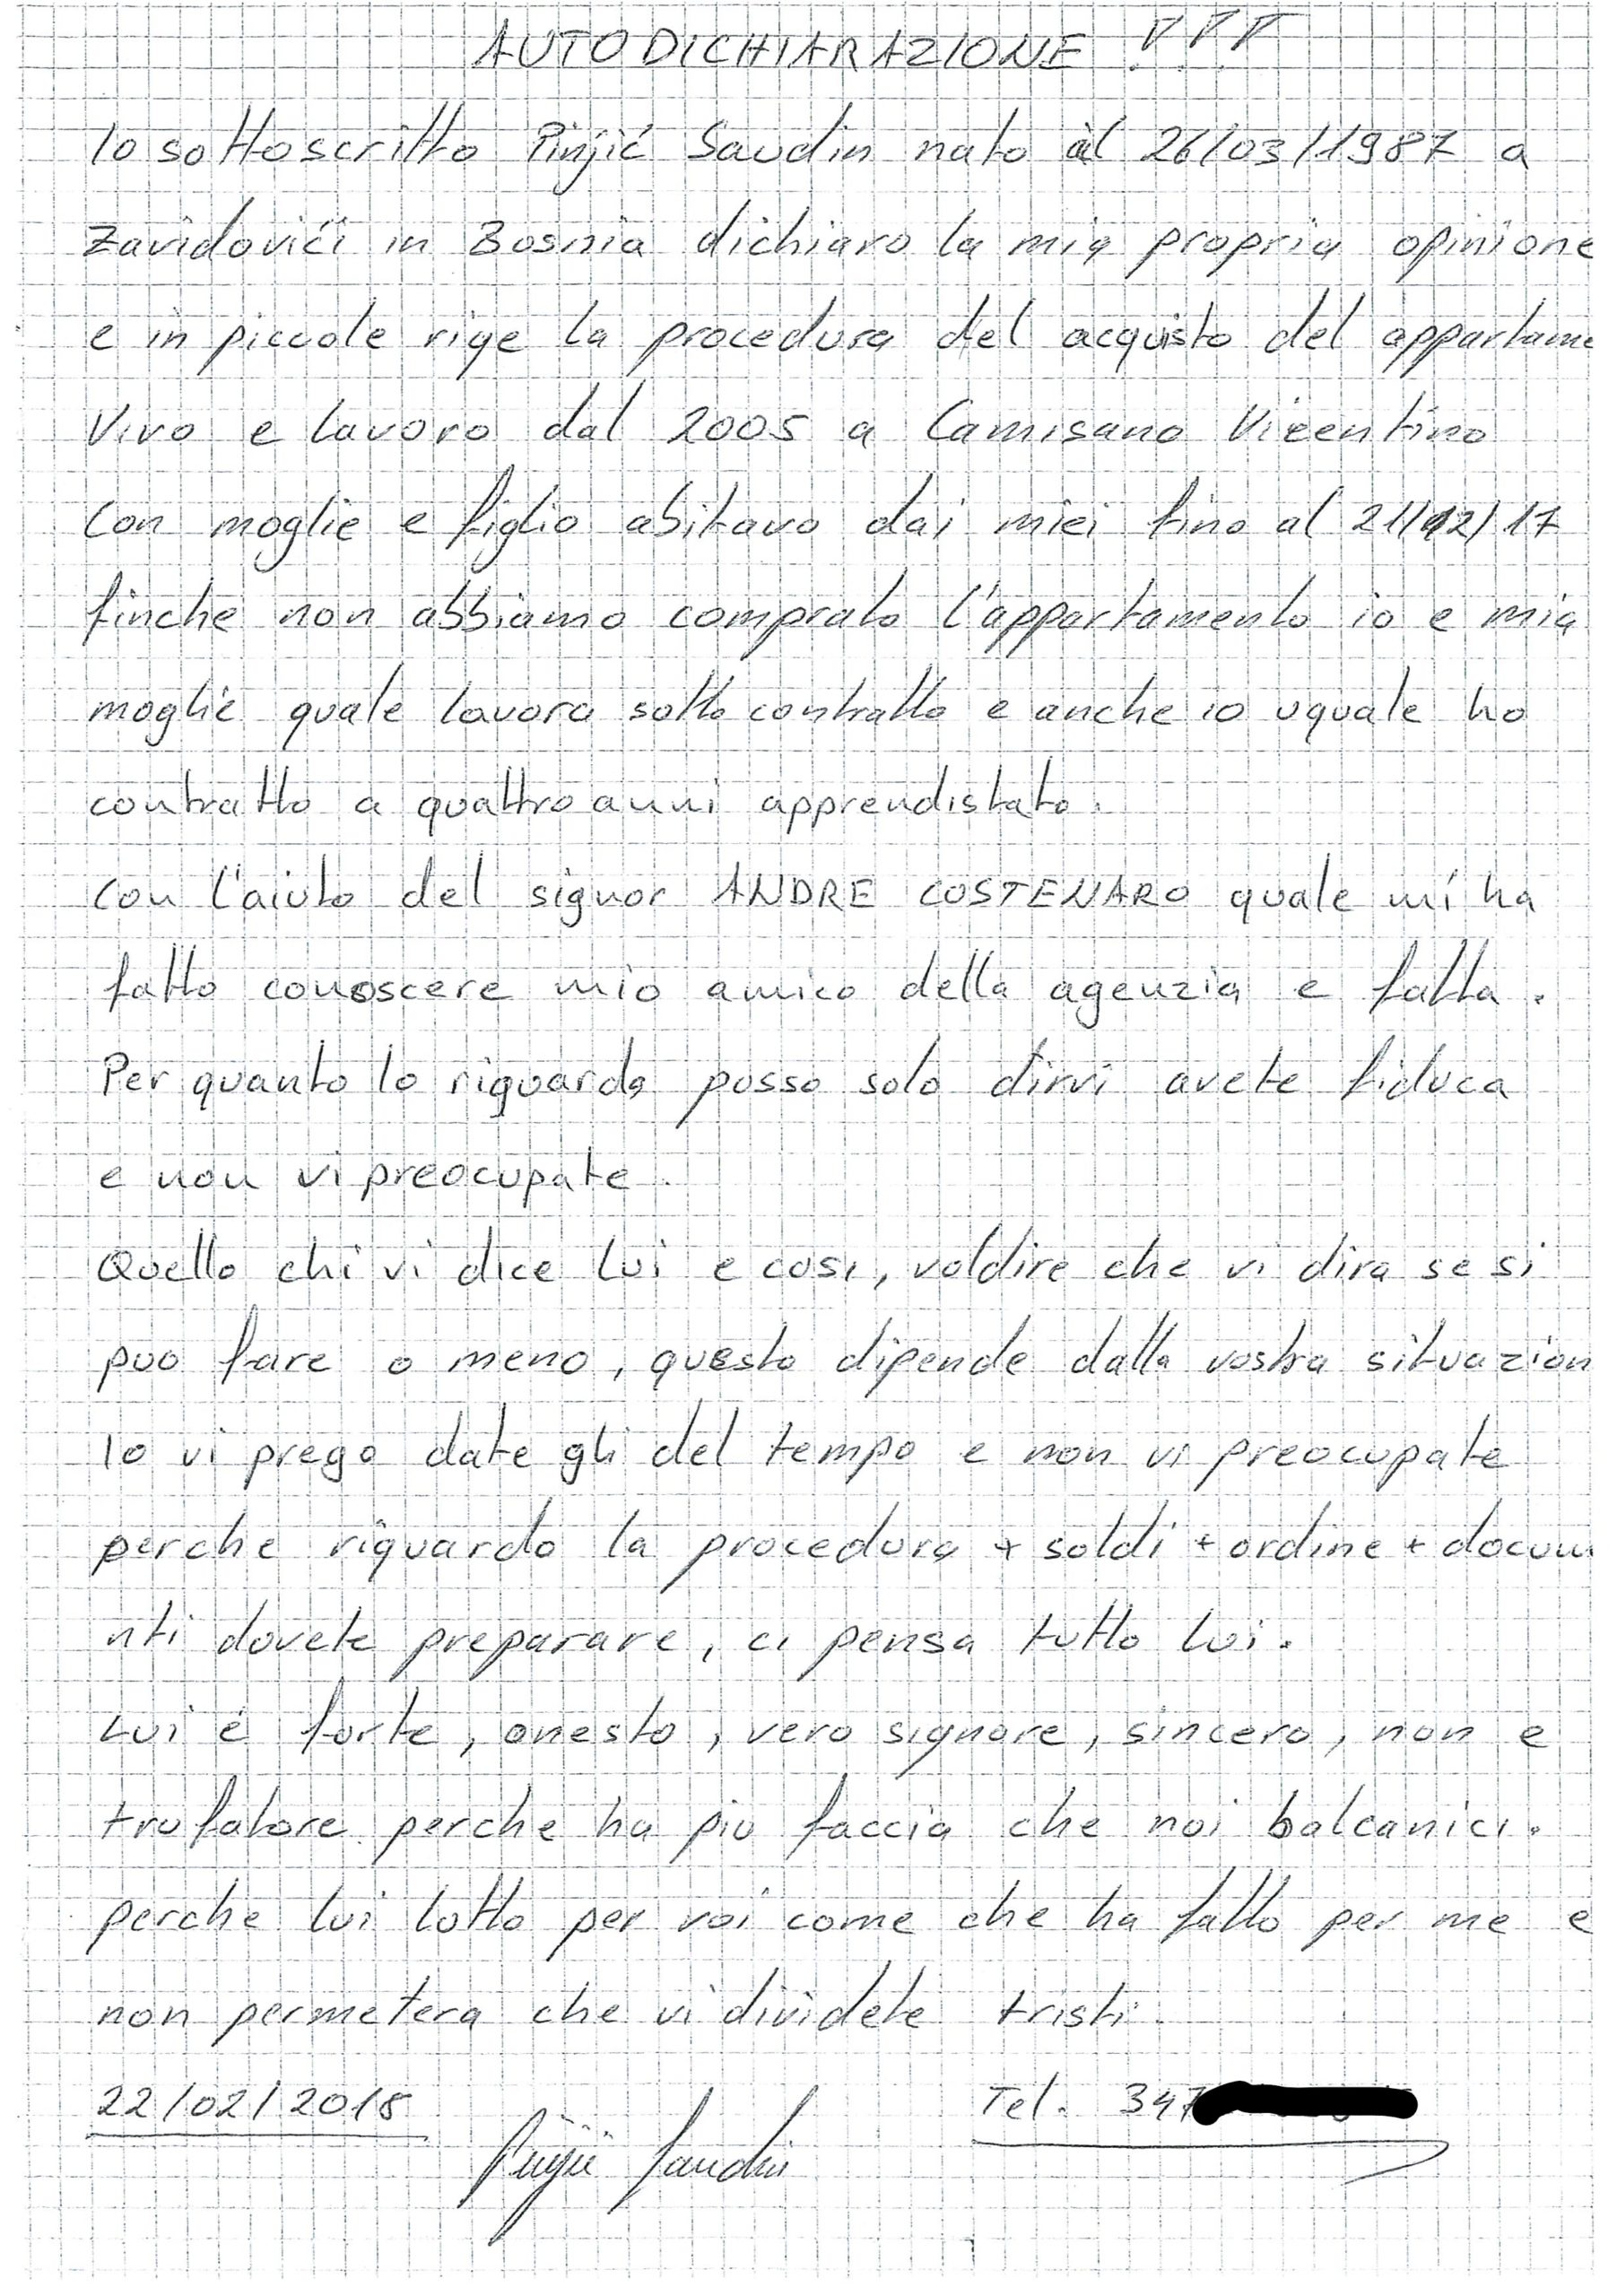 AUTODICHIARAZIONE !!!
Io sottoscritto Pinjić Saudin nato al 26/03/1987 a
Zavidovići in Bosnia dichiaro la mia propria opinione
e in piccole rige la procedura del acquisto del appartame
Vivo e lavoro dal 2005 a Camisano Vicentino
Con moglie e figlio abitavo dai miei fino al 21/12/17
finche non abbiamo comprato l'appartamento io e mia
moglie quale lavora sotto contratto e anche io uguale ho
contratto a quattro anni apprendistato.
Con l'aiuto del signor ANDRE COSTENARO quale mi ha
fatto conoscere mio amico della agenzia e fatta.
Per quanto lo riguarda posso solo dirvi avete fiduca
e non vi preocupate.
Quello chi vi dice lui e cosi, voldire che vi dira se si
puo fare o meno, questo dipende dalla vostra situazion
Io vi prego date gli del tempo e non vi preocupate
perche riguardo la procedura + soldi + ordine + docum
nti dovete preparare, ci pensa tutto lui.
Lui é forte, onesto, vero signore, sincero, non e
trufatore perche ha piu faccia che noi balcanici.
perche lui lotto per voi come che ha fatto per me e
non permetera che vi dividete tristi.
22/02/2018 Tel. 347
Pinjić Saudin